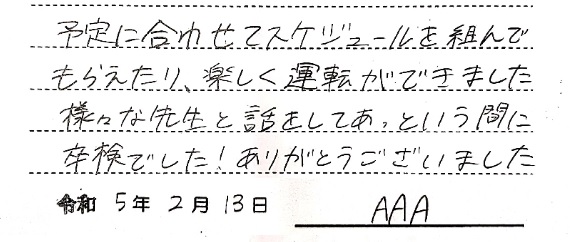 予定に合わせてスケジュールを組んで
もらえたり、楽しく運転ができました
様々な先生と話をしてあっという間に
卒検でした！ありがとうございました
令和 5年 2月 13日 AAA